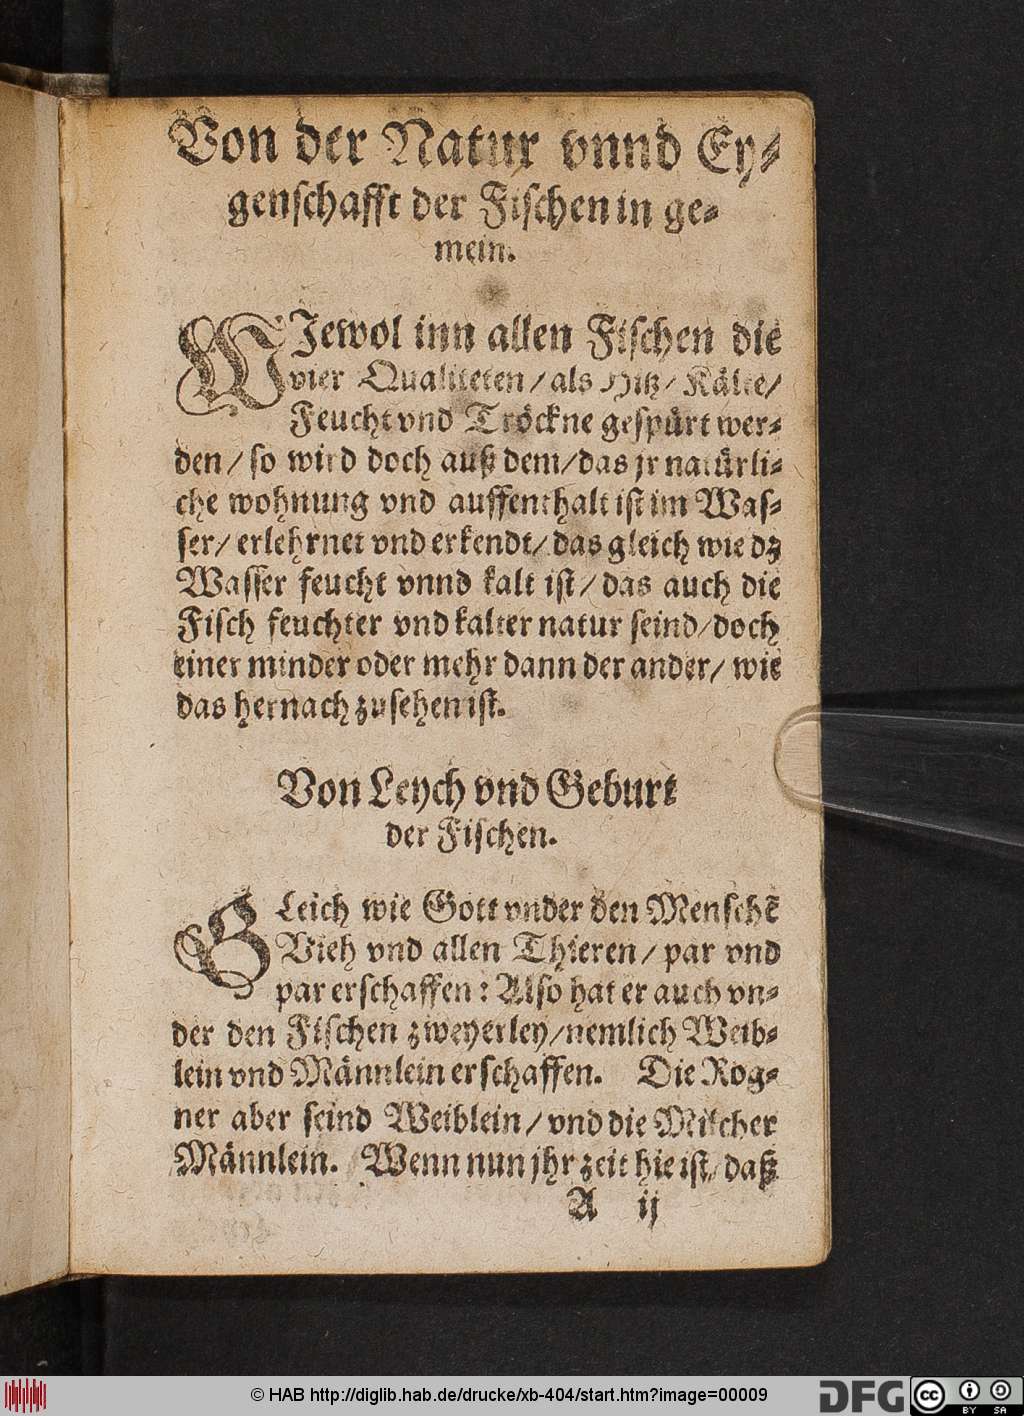 Von der Natur vnnd Ey⸗
genſchafft der Fiſchen in ge⸗
mein.
WJewol inn allen Fiſchen die
vier Qualiteten/ als Hitz/ Kälte/
Feucht vnd Tröckne geſpürt wer⸗
den/ ſo wird doch auß dem/ das jr natürli⸗
che wohnung vnd auffenthalt iſt im Waſ⸗
ſer/ erlehrnet vnd erkendt/ das gleich wie dz
Waſſer feucht vnnd kalt iſt/ das auch die
Fiſch feuchter vnd kalter natur ſeind/ doch
einer minder oder mehr dann der ander/ wie
das hernach zuſehen iſt.
Von Leych vnd Geburt
der Fiſchen.
GLeich wie Gott vnder den Menſchẽ
Vieh vnd allen Thieren/ par vnd
par erſchaffen: Alſo hat er auch vn⸗
der den Fiſchen zweyerley/ nemlich Weib⸗
lein vnd Männlein erſchaffen. Die Rog⸗
ner aber ſeind Weiblein/ vnd die Milcher
Männlein. Wenn nun jhr zeit hie iſt/ daß
A ij
© HAB http://diglib.hab.de/drucke/xb-404/start.htm?image=00009
DFG
cc BY SA